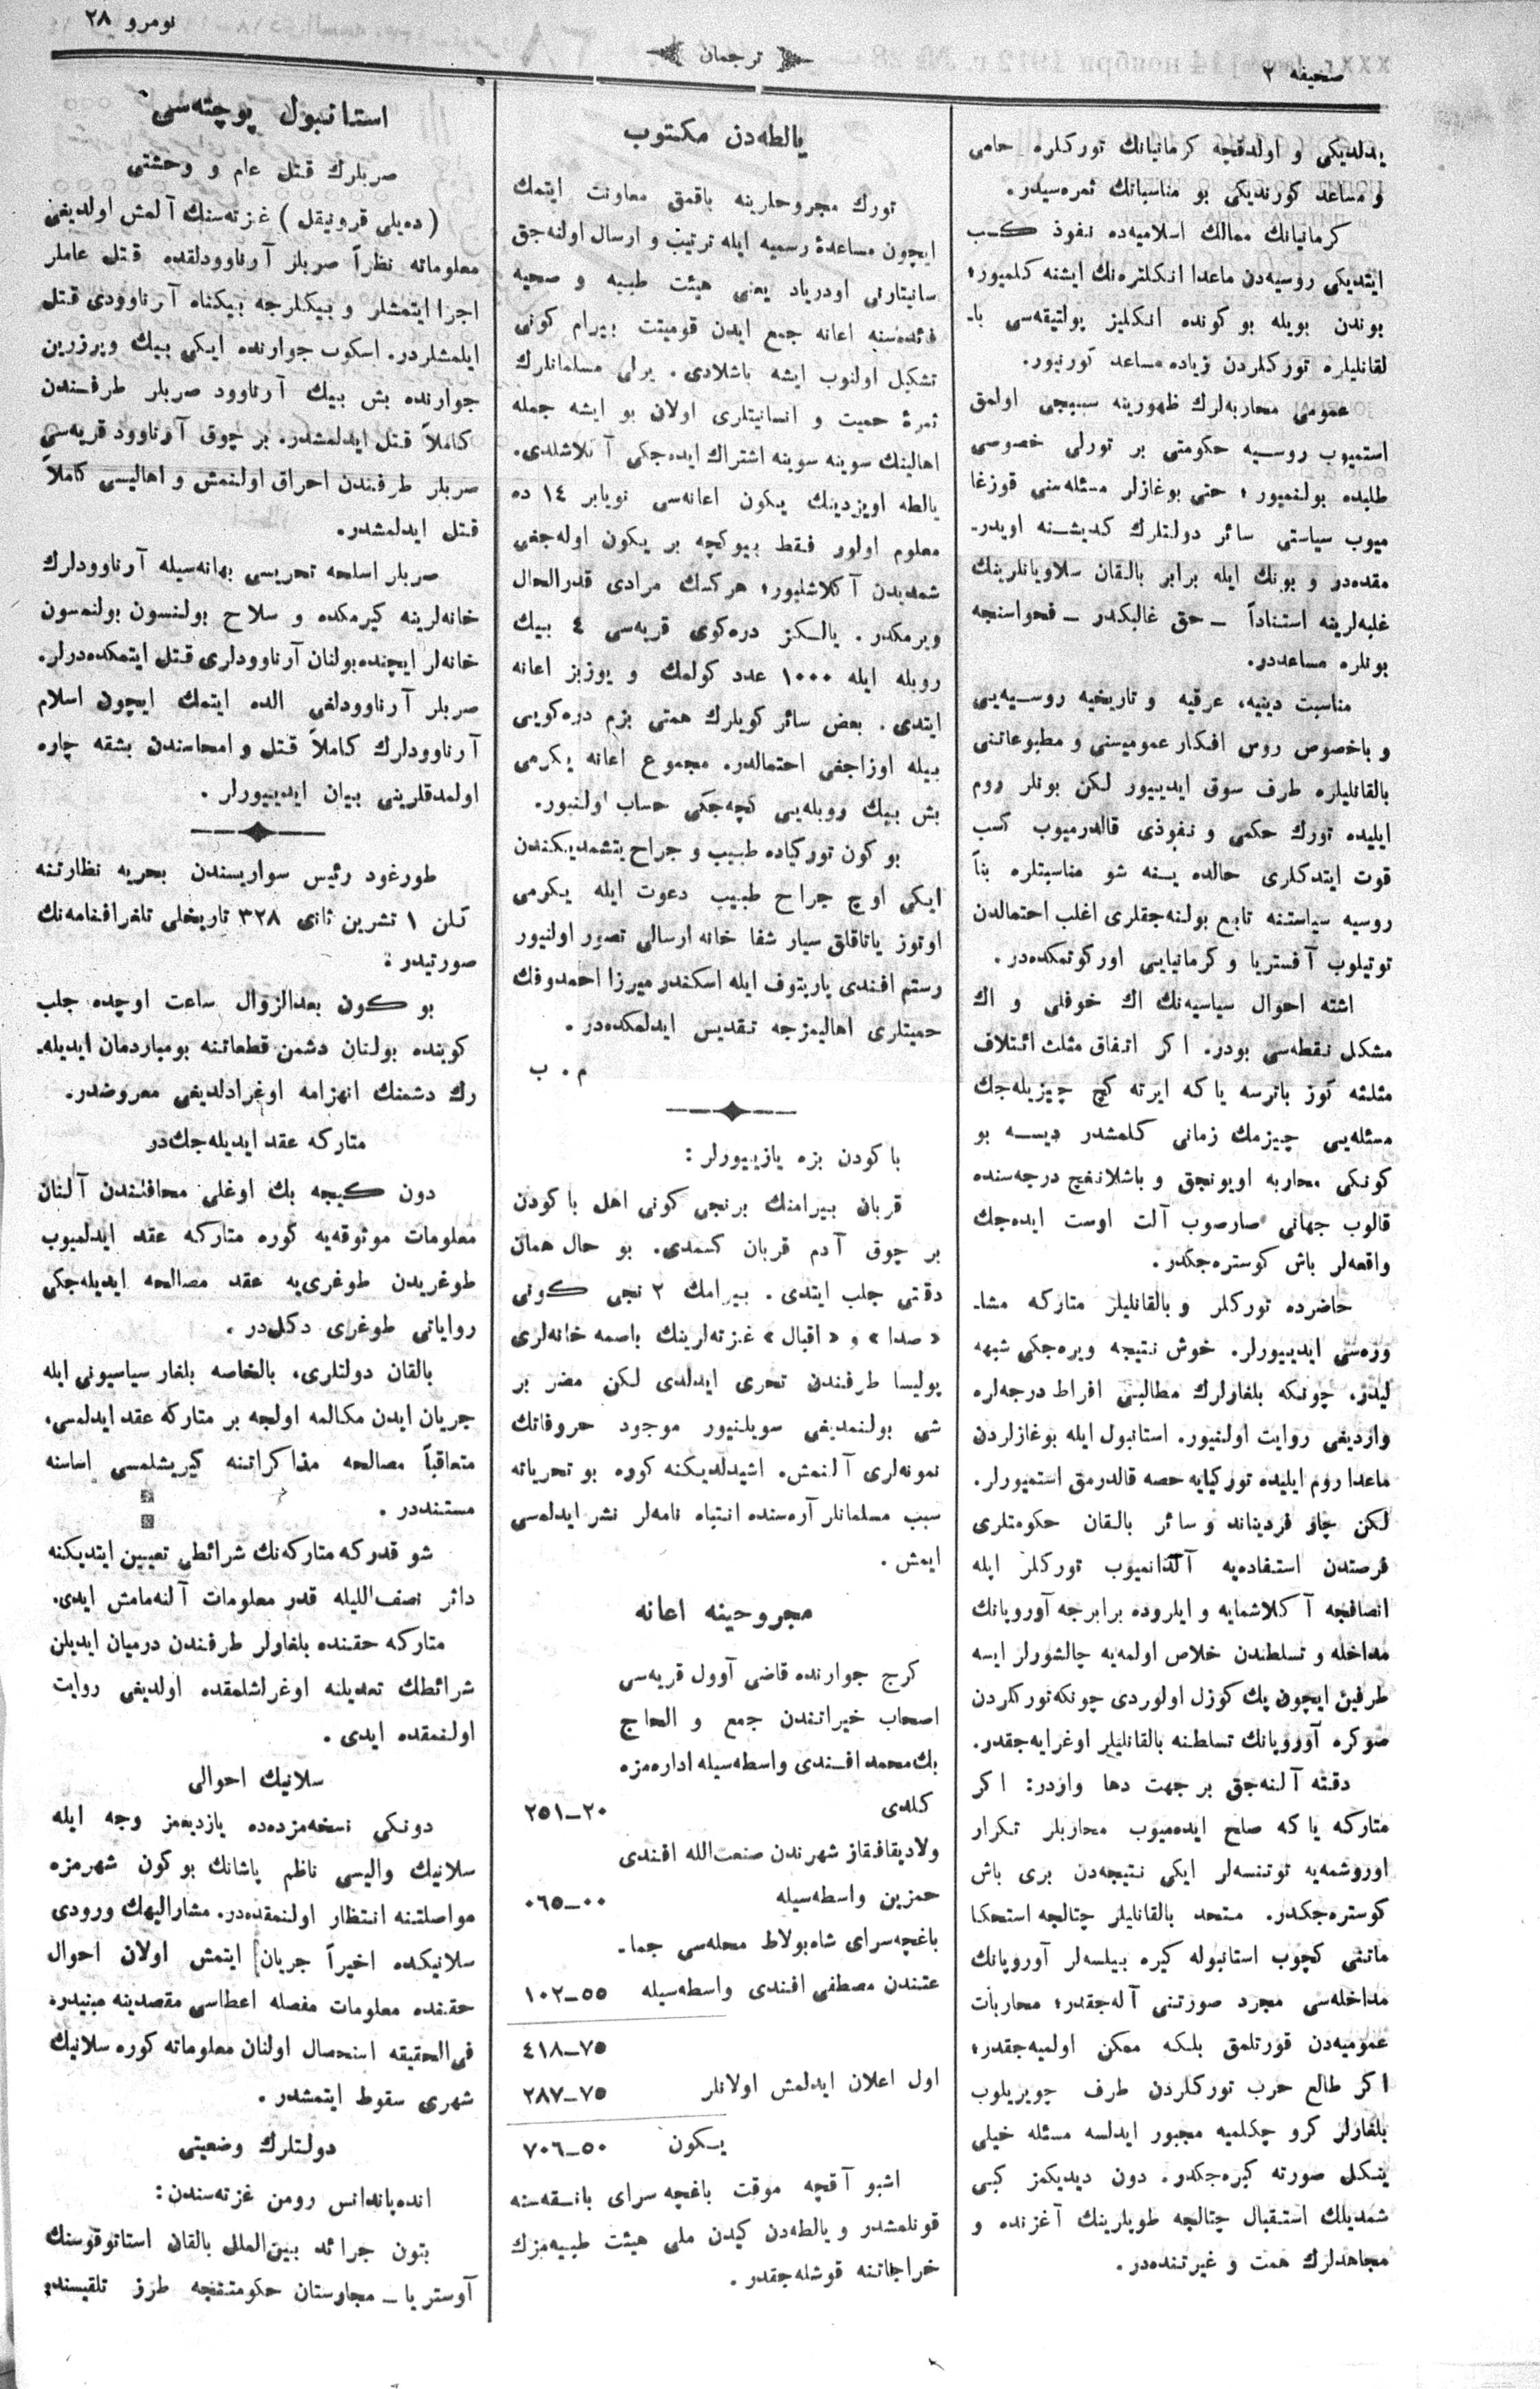 صحیفه ٢
ترجمان
نومرو ٢٨
یدلدیکی و اولدقچه کرمانیانك تورکلره حامی
و مساعد کورندیکی بو مناسباتك ثمره‌سیدر.
کرمانیانك ممالك اسلامیه‌ده نفوذ کسب
ایتدیکی روسیه‌دن ماعدا انکلتره‌نك ایشنه کلمیور؛
بوندن بویله بو کونده انکلیز پولتیقه‌سی با-
لقانلیلره تورکلردن زیاده مساعد کورنیور.
عمومی محاربه‌لرك ظهورینه سببچی اولمق
استمیوب روسیه حکومتی بر تورلی خصوصی
طلبده بولنمیور؛ حتی بوغازلر مسئله‌سنی قوزغا
میوب سیاستی سائر دولتلرك کدیشنه اویدر-
مقده‌در و بونك ایله برابر بالقان سلاویانلرینك
غلبه‌لرینه استناداً — حق غالبکدر — فحواسنجه
بونلره مساعددر.
مناسبت دینیه، عرقیه و تاریخیه روسیه‌یی
و باخصوص روس افکار عمومیسنی و مطبوعاتنی
بالقانلیلره طرف سوق ایدییور لکن بونلر روم
ایلیده تورك حکمی و نفوذی قالدرمیوب کسب
قوت ایتدکلری حالده ینه شو مناسبتلره بناً
روسیه سیاستنه تابع بولنه‌جقلری اغلب احتمالدن
توتیلوب آفستریا و کرمانیایی اورکوتمکده‌در.
اشته احوال سیاسیه‌نك اك خوفلی و اك
مشکل نقطه‌سی بودر. اکر اتفاق مثلث ائتلاف
مثلثه کوز باترسه یاکه ایرته کچ چیزیله‌جك
مسئله‌یی چیزمك زمانی کلمشدر دیسه بو
کونکی محاربه اویونجق و باشلانغیچ درجه‌سنده
قالوب جهانی صارصوب آلت اوست ایده‌جك
واقعه‌لر باش کوستره‌جکدر.
حاضرده تورکلر و بالقانلیلر متارکه مشا-
وره‌سی ایدییورلر. خوش نتیجه ویره‌جکی شبهه
لیدر. چونکه بلغارلرك مطالبی افراط درجه‌لره
واردیغی روایت اولنیور. استانبول ایله بوغازلردن
ماعدا روم ایلیده تورکیایه حصه قالدرمق استمیورلر.
لکن چار فردیناند و سائر بالقان حکومتلری
فرصتدن استفاده‌یه آلدانمیوب تورکلر ایله
انصافجه آکلاشمایه و ایلروده برابرجه آوروپانك
مداخله و تسلطندن خلاص اولمه‌یه چالشورلر ایسه
طرفین ایچون پك کوزل اولوردی چونکه تورکلردن
صوکره آوروپانك تسلطنه بالقانلیلر اوغرایه‌جقدر.
دقته آلنه‌جق بر جهت دها واردر: اکر
متارکه یاکه صلح ایده‌میوب محاربلر تکرار
اوروشمه‌یه توتنسه‌لر ایکی نتیجه‌دن بری باش
کوستره‌جکدر. متحد بالقانلیلر چتالجه استحکا
ماتنی کچوب استانبوله کیره بیلسه‌لر آوروپانك
مداخله‌سی مجرد صورتنی آله‌جقدر؛ محاربات
عمومیه‌دن قورتلمق بلکه ممکن اولمیه‌جقدر؛
اکر طالع حرب تورکلردن طرف چویریلوب
بلغارلر کرو چکلمیه مجبور ایدلسه مسئله خیلی
ینکل صورته کیره‌جکدر. دون دیدیکمز کبی
شمدیلك استقبال چتالجه طوپلرینك آغزنده و
مجاهدلرك همت و غیرتنده‌در.
یالطه‌دن مکتوب
تورك مجروحلرینه باقمق معاونت ایتمك
ایچون مساعدهٔ رسمیه ایله ترتیب و ارسال اولنه‌جق
سانیتارنی اودریاد یعنی هیئت طبیه و صحیه
فائده‌سنه اعانه جمع ایدن قومیتت بیرام کونی
تشکیل اولنوب ایشه باشلادی. یرلی مسلمانلرك
ثمرهٔ حمیت و انسانیتلری اولان بو ایشه جمله
اهالینك سوینه سوینه اشتراك ایده‌جکی آکلاشلدی.
یالطه اویزدینك یکون اعانه‌سی نویابر ١٤ ده
معلوم اولور فقط بیوکچه بر یکون اوله‌جغی
شمدیدن آکلاشلیور؛ هرکسك مرادی قدرالحال
ویرمکدر. یالکز دره‌کوی قریه‌سی ٤ بیك
روبله ایله ١٠٠٠ عدد کولمك و یوزبز اعانه
ایتدی. بعض سائر کویلرك همتی بزم دره‌کویی
بیله اوزاجغی احتمالدر. مجموع اعانه یکرمی
بش بیك روبله‌یی کچه‌جکی حساب اولنیور.
بو کون تورکیاده طبیب و جراح یتشمدیکندن
ایکی اوچ جراح طبیب دعوت ایله یکرمی
اوتوز یاتاقلق سیار شفا خانه ارسالی تصور اولنیور
رستم افندی یاریتوف ایله اسکندر میرزا احمدوفك
حمیتلری اهالیمزجه تقدیس ایدلمکده‌در.
م. ب
باکودن بزه یازییورلر:
قربان بیرامنك برنجی کونی اهل باکودن
بر چوق آدم قربان کسمدی. بو حال همان
دقتی جلب ایتدی. بیرامك ٢ نجی کونی
«صدا» و «اقبال» غزته‌لرینك باصمه خانه‌لری
پولیسا طرفندن تحری ایدلدی لکن مضر بر
شی بولنمدیغی سویلنیور موجود حروفاتك
نمونه‌لری آلنمش. اشیدلدیکنه کوره بو تحریاته
سبب مسلمانلر آره‌سنده انتباه نامه‌لر نشر ایدلمسی
ایمش.
مجروحینه اعانه
کرچ جوارنده قاضی آوول قریه‌سی
اصحاب خیراتندن جمع و الحاج
بك محمد افندی واسطه‌سیله اداره‌مزه
کلدی ٢٥١—٢٠
ولادیقافقاز شهرندن صنعت‌الله افندی
حمزین واسطه‌سیله ٠٦٥—٠٠
باغچه‌سرای شاه‌بولاط محله‌سی جما-
عتندن مصطفی افندی واسطه‌سیله ١٠٢—٥٥
٤١٨—٧٥
اول اعلان ایدلمش اولانلر ٢٨٧—٧٥
یکون ٧٠٦—٥٠
اشبو آقچه موقت باغچه سرای بانقه‌سنه
قونلمشدر و یالطه‌دن کیدن ملی هیئت طبیه‌مزك
خراجاتنه قوشله‌جقدر.
استانبول پوچته‌سی
صربلرك قتل عام و وحشتی
(ده‌یلی قرونیقل) غزته‌سنك آلمش اولدیغی
معلوماته نظراً صربلر آرناوودلقده قتل عاملر
اجرا ایتمشلر و بیکلرجه بیکناه آرناوودی قتل
ایلمشلردر. اسکوب جوارنده ایکی بیك ویرزرین
جوارنده بش بیك آرناوود صربلر طرفندن
کاملاً قتل ایدلمشدر. بر چوق آرناوود قریه‌سی
صربلر طرفندن احراق اولنمش و اهالیسی کاملاً
قتل ایدلمشدر.
صربلر اسلحه تحریسی بهانه‌سیله آرناوودلرك
خانه‌لرینه کیرمکده و سلاح بولنسون بولنمسون
خانه‌لر ایچنده بولنان آرناوودلری قتل ایتمکده‌درلر.
صربلر آرناوودلغی الده ایتمك ایچون اسلام
آرناوودلرك کاملاً قتل و امحاسندن بشقه چاره
اولمدقلرینی بیان ایدییورلر.
طورغود رئیس سواریسندن بحریه نظارتنه
کلن ١ تشرین ثانی ٣٢٨ تاریخلی تلغرافنامه‌نك
صورتیدر:
بو کون بعدالزوال ساعت اوچده جلب
کوینده بولنان دشمن قطعاتنه بومباردمان ایدیله-
رك دشمنك انهزامه اوغرادلدیغی معروضدر.
متارکه عقد ایدیله‌جك‌در
دون کیجه بك اوغلی محافلندن آلنان
معلومات موثوقه‌یه کوره متارکه عقد ایدلمیوب
طوغریدن طوغری‌یه عقد مصالحه ایدیله‌جکی
روایاتی طوغری دکل‌در.
بالقان دولتلری، بالخاصه بلغار سیاسیونی ایله
جریان ایدن مکالمه اولجه بر متارکه عقد ایدلمسی،
متعاقباً مصالحه مذاکراتنه کیریشلمسی اساسنه
مستنددر.
شو قدرکه متارکه‌نك شرائطی تعیین ایتدیکنه
دائر نصف‌اللیله قدر معلومات آلنه‌مامش ایدی.
متارکه حقنده بلغارلر طرفندن درمیان ایدیلن
شرائطك تعدیلنه اوغراشلمقده اولدیغی روایت
اولنمقده ایدی.
سلانیك احوالی
دونکی نسخه‌مزده‌ده یازدیغمز وجه ایله
سلانیك والیسی ناظم پاشانك بو کون شهرمزه
مواصلتنه انتظار اولنمقده‌در. مشارالیهك ورودی
سلانیکده اخیراً جریان ایتمش اولان احوال
حقنده معلومات مفصله اعطاسی مقصدینه مبنیدر.
فی‌الحقیقه استحصال اولنان معلوماته کوره سلانیك
شهری سقوط ایتمشدر.
دولتلرك وضعیتی
انده‌پاندانس رومن غزته‌سندن:
بتون جرائد بین‌الملل بالقان استاتوقوسنك
آوستریا — مجارستان حکومتنجه طرز تلقیسندن